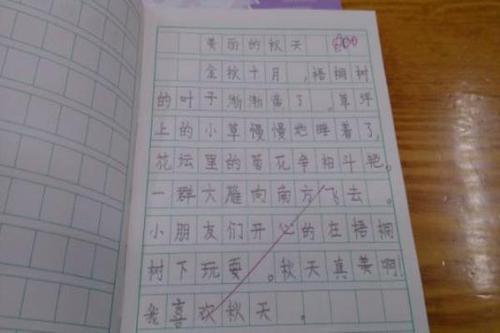 美丽的秋天
金秋十月，梧桐树
的叶子渐渐黄了。草坪
上的小草慢慢地睡着了，
花坛里的菊花争相斗艳。
一群大雁向南方飞去。
小朋友们开心的在梧桐
树下玩耍。秋天真美啊
我喜欢秋天。